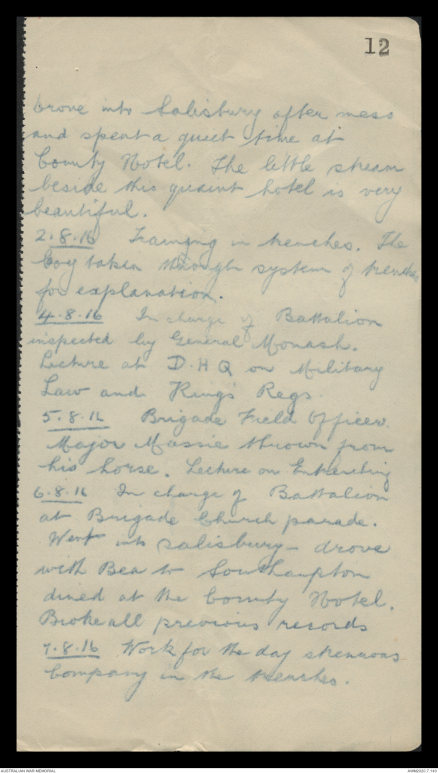 12
Drove into Salisbury after mess
and spent a quiet time at
County Hotel. The little stream
beside this quaint hotel is very
beautiful.
2.8.16 Training in trenches. The
Coy taken through system of trenches
for explanation.
4.8.16 In charge of Battalion
inspected by General Monash.
Lecture at D.H.Q on Military
Law and King's Regs
5.8.16 Brigade Field Officer.
Major Massie thrown from
his horse. Lecture on Entrenching
6.8.16 In charge of Battalion
at Brigade Church parade.
Went into Salisbury - drove
with Bea to Southampton
dined at the County Hotel.
Broke all previous records
7.8.16 Work for the day strenuous
Company in the trenches.
AUSTRALIAN WAR MEMORIAL